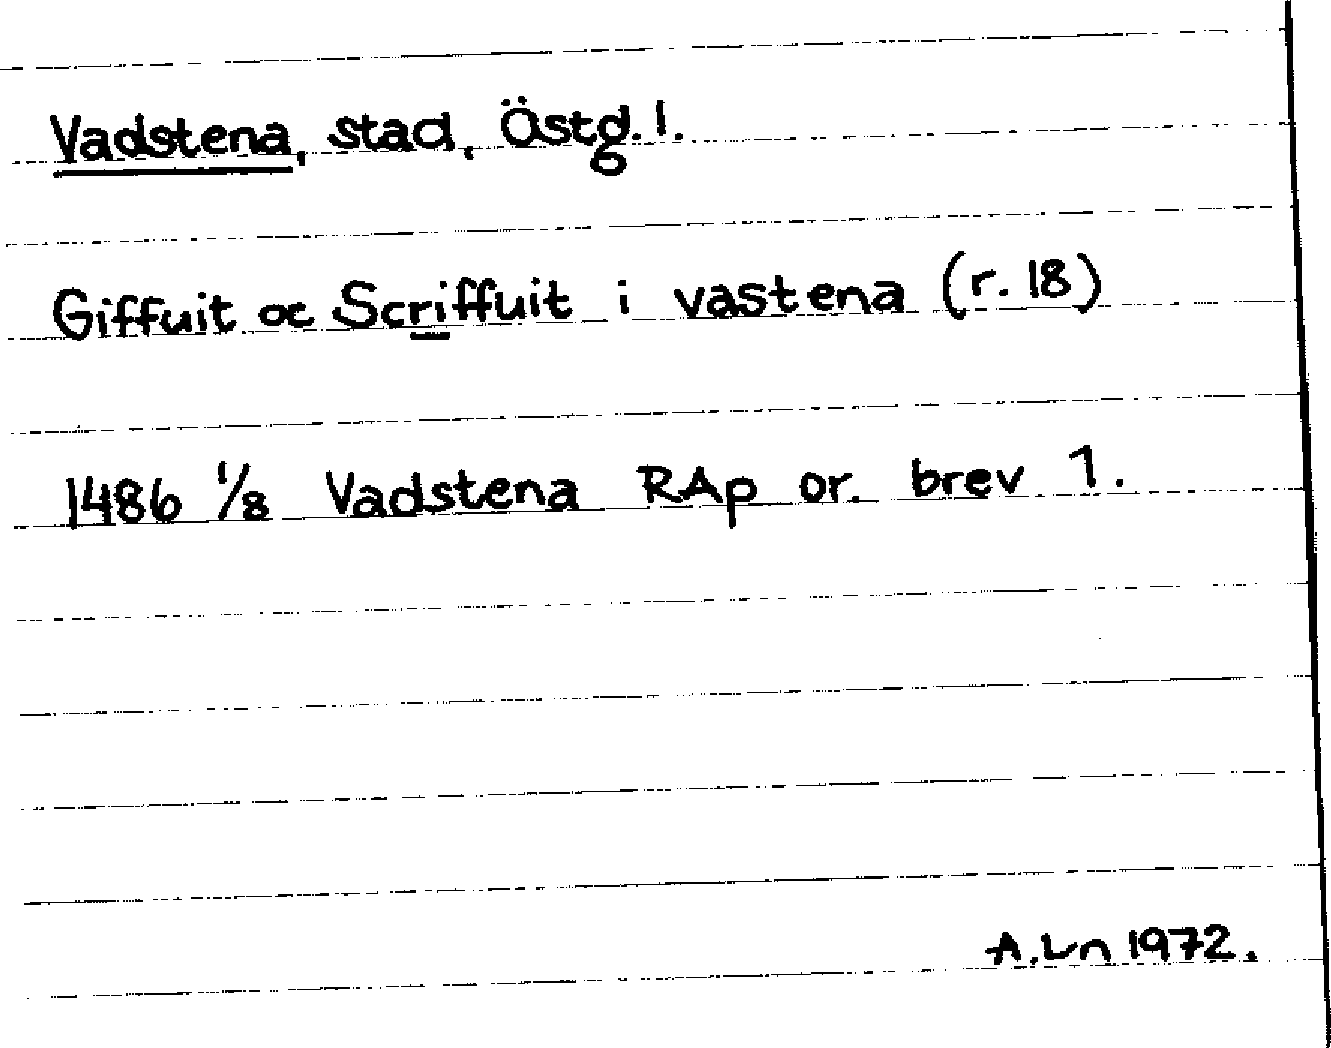 Vadstena, stad, Östg. l.
Giffuit oc Scriffuit i vastena (r. 18)
1486 1/8 Vadstena RAp or. brev 1.
A. Ln 1972.